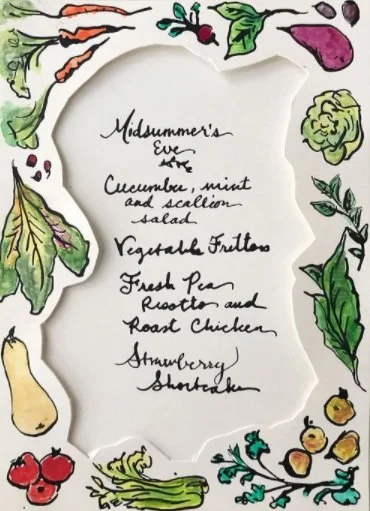 Midsummer's
Eve
Cucumber, mint
and scallion
salad
Vegetable Fritters
Fresh Pea
Risotto and
Roast Chicken
Strawberry
Shortcake